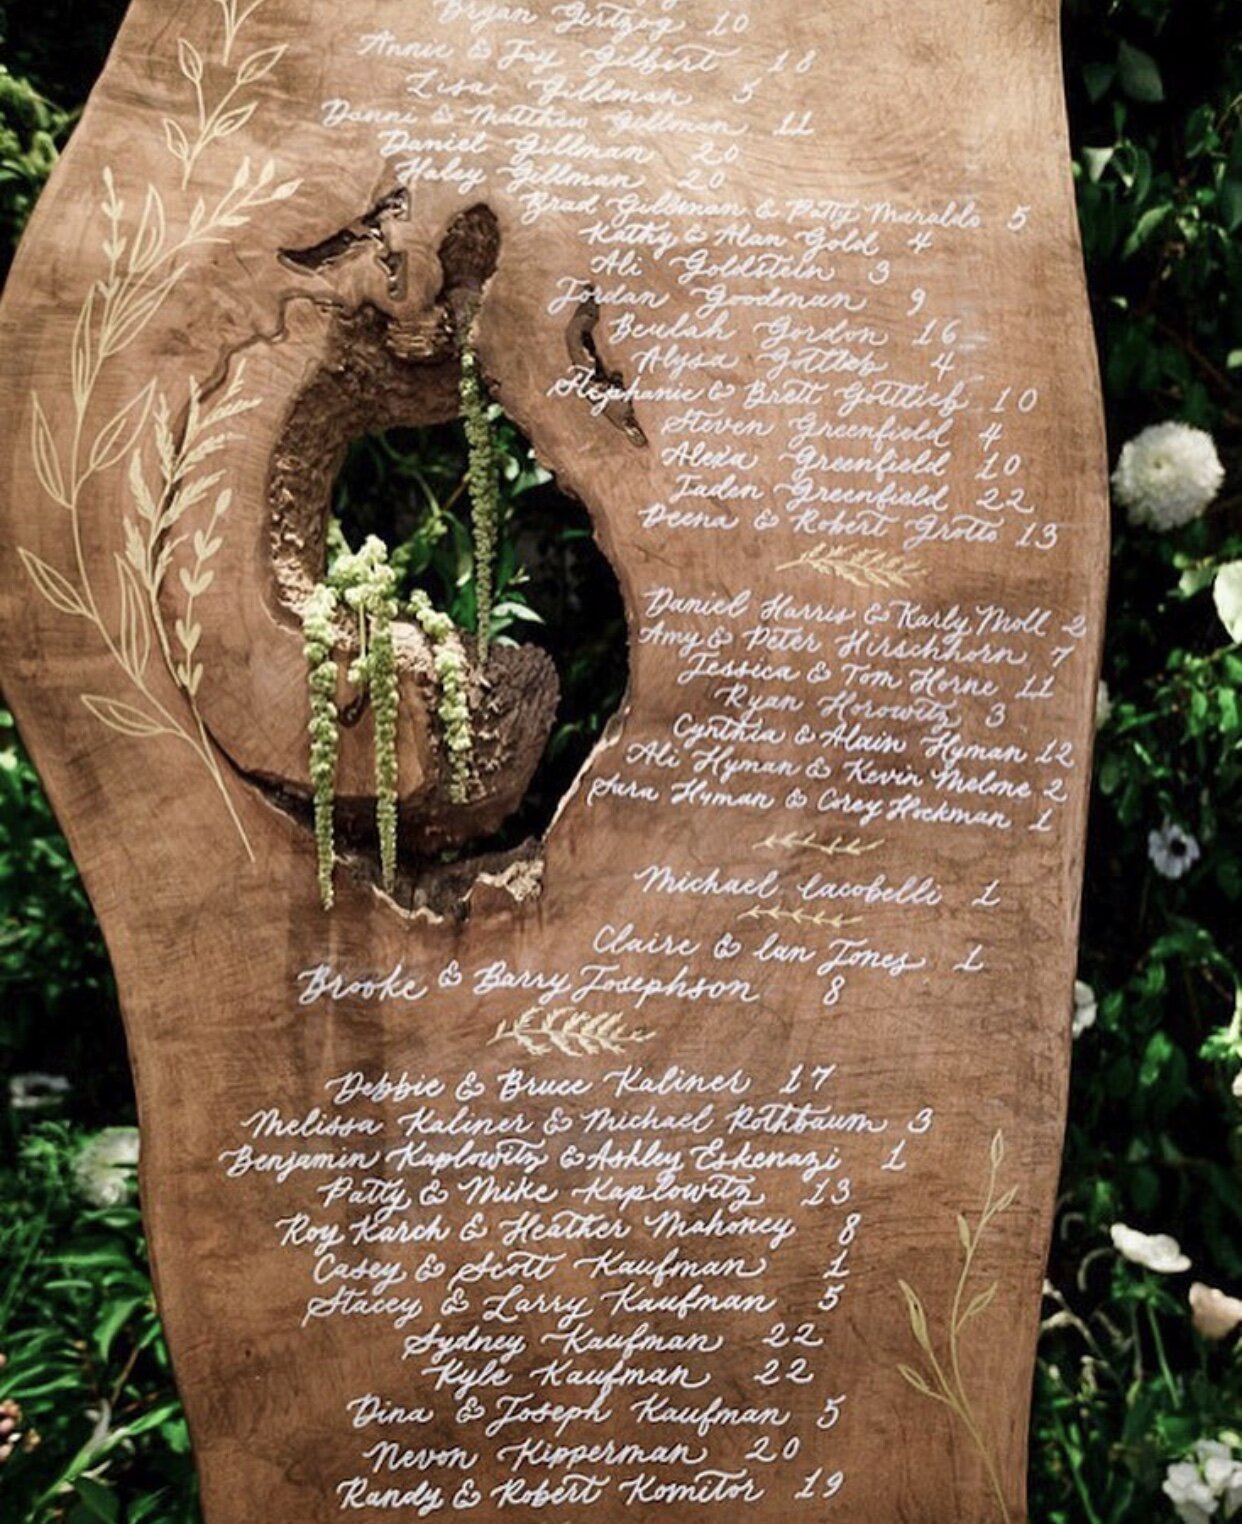 Bryan Gertzog 10
Annie & Jay Gilbert 18
Lisa Gillman 5
Danni & Matthew Gillman 11
Daniel Gillman 20
Haley Gillman 20
Brad Gillman & Patty Maraldo 5
Kathy & Alan Gold 4
Ali Goldstein 3
Jordan Goodman 9
Beulah Gordon 16
Alysa Gottlieb 4
Stephanie & Brett Gottlieb 10
Steven Greenfield 4
Alexa Greenfield 10
Jaden Greenfield 22
Deena & Robert Grotto 13
Daniel Harris & Karly Moll 2
Amy & Peter Hirschhorn 7
Jessica & Tom Horne 11
Ryan Horowitz 3
Cynthia & Alain Hyman 12
Ali Hyman & Kevin Melone 2
Sara Hyman & Corey Hockman 1
Michael Iacobelli 1
Claire & Ian Jones 1
Brooke & Barry Josephson 8
Debbie & Bruce Kaliner 17
Melissa Kaliner & Michael Rothbaum 3
Benjamin Kaplowitz & Ashley Eskenazi 1
Patty & Mike Kaplowitz 13
Roy Karch & Heather Mahoney 8
Casey & Scott Kaufman 1
Stacey & Larry Kaufman 5
Sydney Kaufman 22
Kyle Kaufman 22
Dina & Joseph Kaufman 5
Nevon Kipperman 20
Randy & Robert Komitor 19